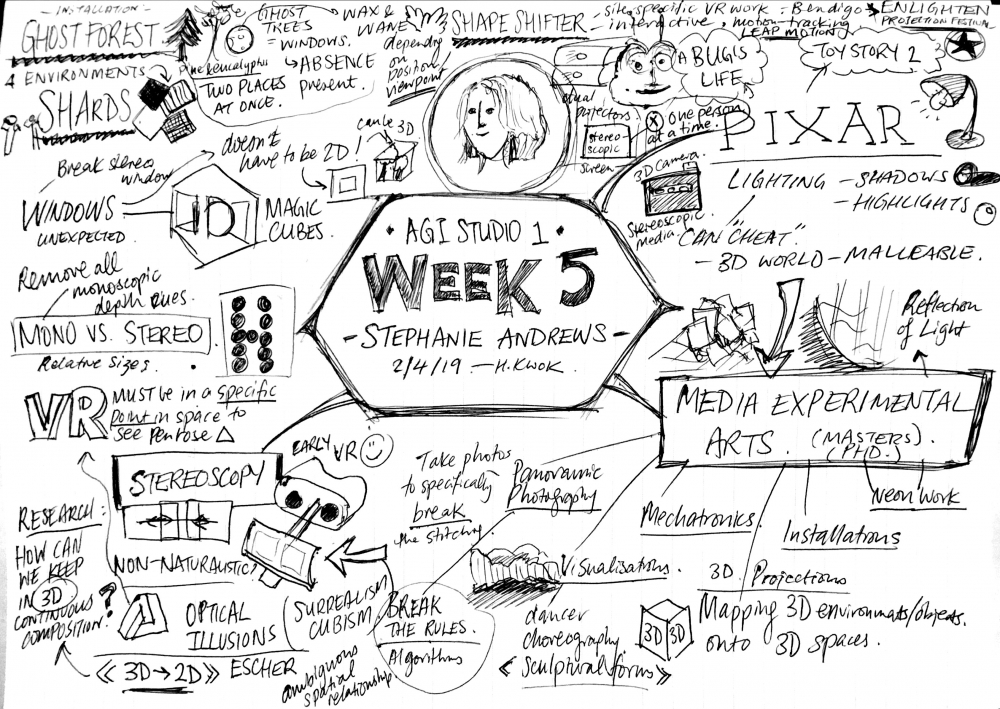 - INSTALLATION -
GHOST FOREST
4 ENVIRONMENTS
SHARDS
Pine & eucalyptus
TWO PLACES
AT ONCE.
GHOST
TREES
= WINDOWS.
↳ ABSENCE
present.
WAX &
WANE
depending
on
position/
viewpoint
SHAPE SHIFTER - site specific VR work = Bendigo
interactive, motion-tracking
LEAP MOTION
ENLIGHTEN
PROJECTION FESTIVAL
A BUG'S
LIFE
TOY STORY 2
PIXAR
dual
projectors
stereo
scopic
screen
one person
at a time.
LIGHTING - SHADOWS
- HIGHLIGHTS
3D camera.
Stereoscopic
media.
"CAN CHEAT"
- 3D WORLD - MALLEABLE.
Break stereo
window
WINDOWS
UNEXPECTED.
doesn't
have to be 2D!
can be 3D
3D
MAGIC
CUBES.
• AGI STUDIO 1 •
WEEK 5
- STEPHANIE ANDREWS -
2/4/19 - H.KWOK.
Remove all
monoscopic
depth cues.
MONO VS. STEREO
Relative sizes.
VR MUST be in a specific
point in space to
see Penrose △
Reflection
of Light
MEDIA EXPERIMENTAL
ARTS. (MASTERS).
(PHD.)
Mechatronics.
Installations
Neon work
3D Projections
Mapping 3D environments/objects.
onto 3D spaces.
3D 3D
Panoramic
Photography
Take photos
to specifically
break
the stitching
Visualisations.
dancer
choreography.
« Sculptural forms »
EARLY
VR
STEREOSCOPY
NON-NATURALISTIC
OPTICAL
ILLUSIONS
SURREALISM
CUBISM
BREAK
THE RULES.
Algorithms
« 3D→2D » ESCHER
ambiguous
spatial
relationship.
RESEARCH:
HOW CAN
WE KEEP
IN 3D
CONTINUOUS
COMPOSITION?